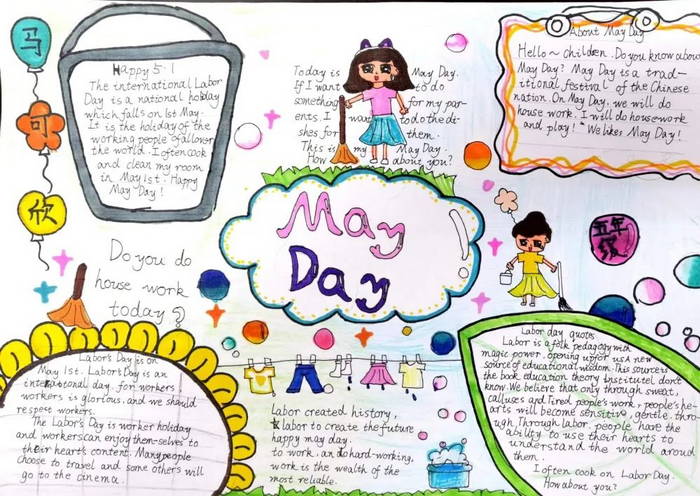 马
可
欣
Happy 5·1
The international Labor
Day is a national holiday
which falls on 1st May.
It is the holiday of the
working people of all over
the world. I often cook
and clean my room
in May 1st. Happy
May Day!
Today is May Day.
If I want to do
something for my par-
ents. I want to do the di-
shes for them.
This is my May Day.
How about you?
About May Day
Hello~ children. Do you know about
May Day? May Day is a trad-
itional festival of the Chinese
nation. On May Day, we will do
house work. I will do housework
and play! We likes May Day!
May
Day
五年
级
Do you do
house work
today?
Labor's Day is on
May 1st. Labor's Day is an
international day for workers,
workers is glorious, and we should
respect workers.
The Labor's Day is worker holiday
and workers can enjoy them-selves to
their hearts content. Many people
choose to travel and some others will
go to the cinema.
Labor created history,
labor to create the future
happy may day.
to work, an hard-working,
work is the wealth of the
most reliable.
Labor day quotes
Labor is a folk pedagogy with
magic power, opening up for us a new
source of educational wisdom. This source is
the book education theory institutel don't
know. We believe that only through sweat,
calluses and Tired people's work, people's he-
arts will become sensitive, gentle. thro-
ugh Through labor, people have the
ability to use their hearts to
understand the world around
them.
I often cook on Labor Day.
How about you?